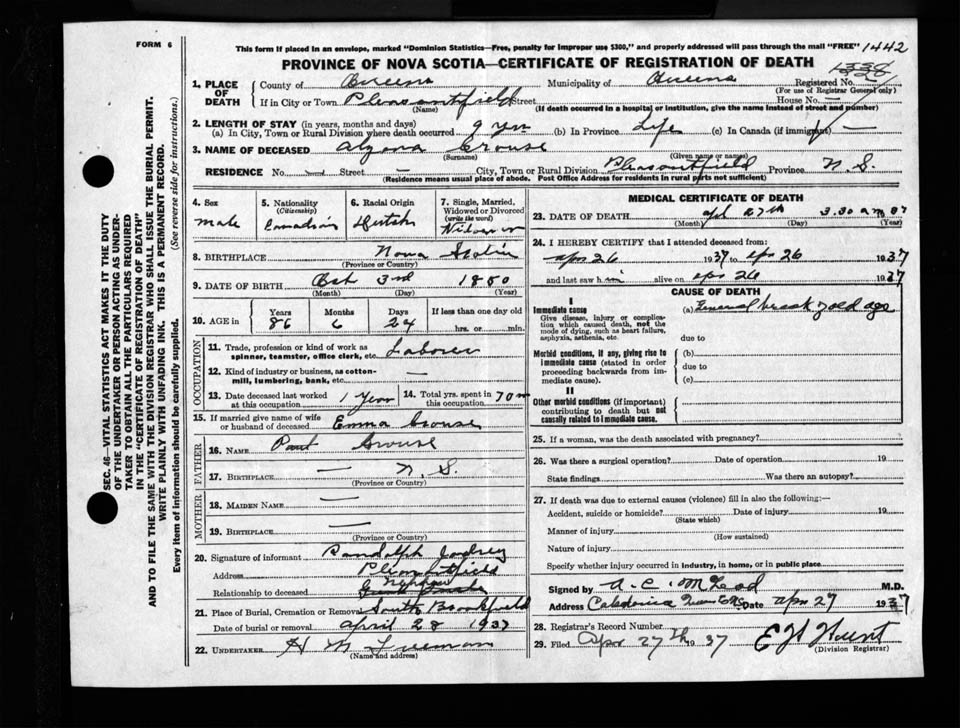 FORM 6
This form if placed in an envelope, marked "Dominion Statistics—Free, penalty for improper use $300," and properly addressed will pass through the mail "FREE" 1442
PROVINCE OF NOVA SCOTIA—CERTIFICATE OF REGISTRATION OF DEATH 1338
1. PLACE OF DEATH
County of Queens Municipality of Queens Registered No.
(For use of Registrar General only)
If in City or Town Pleasantfield Street House No. —
(Name) (If death occurred in a hospital or institution, give the name instead of street and number)
2. LENGTH OF STAY (in years, months and days)
(a) In City, Town or Rural Division where death occurred 9 yrs (b) In Province Life (c) In Canada (if immigrant) —
3. NAME OF DECEASED Crouse
(Surname) (Given name or names)
RESIDENCE No. — Street — City, Town or Rural Division Pleasantfield Province N. S.
(Residence means usual place of abode. Post Office Address for residents in rural parts not sufficient)
4. Sex
male
5. Nationality
(Citizenship)
Canadian
6. Racial Origin
Dutch
7. Single, Married, Widowed or Divorced
(write the word)
Widower
8. BIRTHPLACE Nova Scotia
(Province or Country)
9. DATE OF BIRTH Oct 3rd 1850
(Month) (Day) (Year)
10. AGE in
Years Months Days If less than one day old
86 6 24 hrs. or min.
OCCUPATION
11. Trade, profession or kind of work as spinner, teamster, office clerk, etc. Laborer
12. Kind of industry or business, as cotton-mill, lumbering, bank, etc. —
13. Date deceased last worked at this occupation 1 year
14. Total yrs. spent in this occupation 70
15. If married give name of wife or husband of deceased Emma Crouse
FATHER
16. NAME Crouse
17. BIRTHPLACE — N. S.
(Province or Country)
MOTHER
18. MAIDEN NAME —
19. BIRTHPLACE —
(Province or Country)
20. Signature of informant Randolph
Address Pleasantfield
Relationship to deceased nephew
21. Place of Burial, Cremation or Removal South Brookfield
Date of burial or removal April 28 1937
22. UNDERTAKER H M Freeman
(Name and address)
MEDICAL CERTIFICATE OF DEATH
23. DATE OF DEATH Apl 27th 3.30 a m 37
(Month) (Day) (Year)
24. I HEREBY CERTIFY that I attended deceased from:
apr 26 1937 to apr 26 1937
and last saw him alive on apr 26 1937
CAUSE OF DEATH
I
Immediate cause
Give disease, injury or complication which caused death, not the mode of dying, such as heart failure, asphyxia, asthenia, etc.
(a) General break of old age
due to
Morbid conditions, if any, giving rise to immediate cause (stated in order proceeding backwards from immediate cause).
(b)
due to
(c)
II
Other morbid conditions (if important) contributing to death but not causally related to immediate cause.
25. If a woman, was the death associated with pregnancy?
26. Was there a surgical operation? Date of operation 19
State findings Was there an autopsy?
27. If death was due to external causes (violence) fill in also the following:—
Accident, suicide or homicide? Date of injury 19
(State which)
Manner of injury
(How sustained)
Nature of injury
Specify whether injury occurred in industry, in home, or in public place
Signed by A. C. McLeod M.D.
Address Caledonia Queens Co Date apr 27 1937
28. Registrar's Record Number
29. Filed Apr 27th 1937
(Division Registrar)
SEC. 46—VITAL STATISTICS ACT MAKES IT THE DUTY
OF THE UNDERTAKER OR PERSON ACTING AS UNDERTAKER TO OBTAIN ALL THE PARTICULARS REQUIRED
IN THE "CERTIFICATE OF REGISTRATION OF DEATH"
AND TO FILE THE SAME WITH THE DIVISION REGISTRAR WHO SHALL ISSUE THE BURIAL PERMIT.
WRITE PLAINLY WITH UNFADING INK. THIS IS A PERMANENT RECORD.
Every item of information should be carefully supplied. (See reverse side for instructions.)